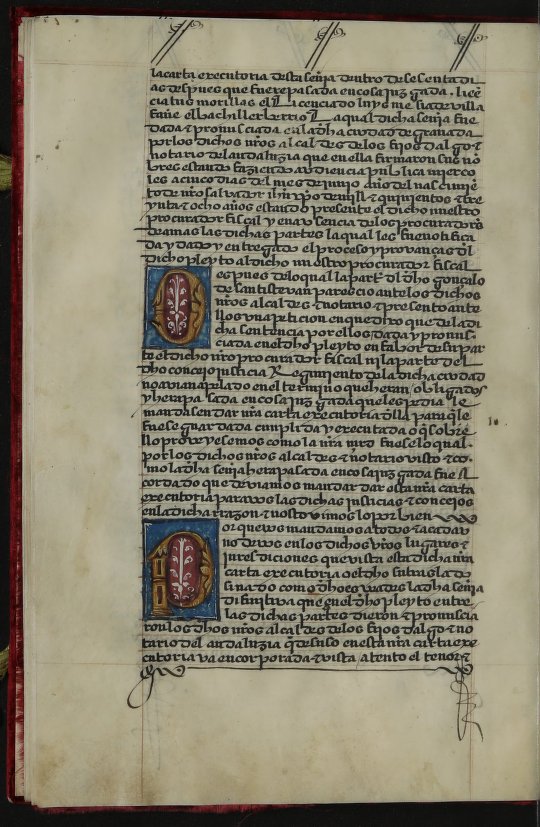 la carta executoria desta señria dentro de sesenta di
as despues que fuere pasada en cosa juzgada . liçē
ciatus morillas el Licenciado luys mexia de villa
fañe el bachiller berrio La qual dicha señia fue
dada & pronunsciada en la dha ciudad de granada
por los dichos nros alcaldes de los fijos dalgo &
notario del andaluzia que en ella firmaron sus nō
bres estando faziendo audiencia publica miercō
les a cinco dias del mes de junio año del nascimiē
to de nro salvador ihu xpo de mill & quinientos & tre
ynta & ocho años estando presente el dicho nuestro
procurador fiscal y en avsencia de los procuradores
de amas las dichas partes la qual les fue notifica
da y dado y entregado el proceso y provanças dl
dicho pleyto al dicho nuestro procurador fiscal
Despues de lo qual la parte dl dho gonçalo
de santistevan parescio ante los dichos
nros alcaldes & notario & presento ante
llos vna peticion en que dixo que de la di
cha sentencia por ellos dada y pronuns
ciada en el dho pleyto en fabor de su par
te el dicho nro procurador fiscal ni la parte del
dho concejo justicia Regimiento de la dicha ciudad
no avian apelado en el termino que heran obligados
y hera pasada en cosa juzgada que les pedia le
mandasen dar nra carta executoria dlla para qle
fuese guardada cunplida y executada o q sobre
llo proveyesemos como la nra mrd fuese lo qual
por los dichos nros alcaldes & notario visto & co
mo la dha señia hera pasada en cosa juzgada fue a
cordado que deviamos mandar dar esta nra carta
executoria para vos las dichas justicias & concejos
en la dicha rrazon & nos tovimos lo por bien
Por que vos mandamos a todos & a cada v
no de vos en los dichos vros lugares &
jurediciones que vista esta dicha nra
carta executoria o el dho su traslado
sinado como dho es veades la dha señia
difinitiva que en el dho pleyto entre
las dichas partes dieron & pronuncia
ron los dhos nros alcaldes de los fijos dalgo & no
tario del andaluzia q de suso en esta nra carta exe
cutoria va encorporada & vista atento el tenor &